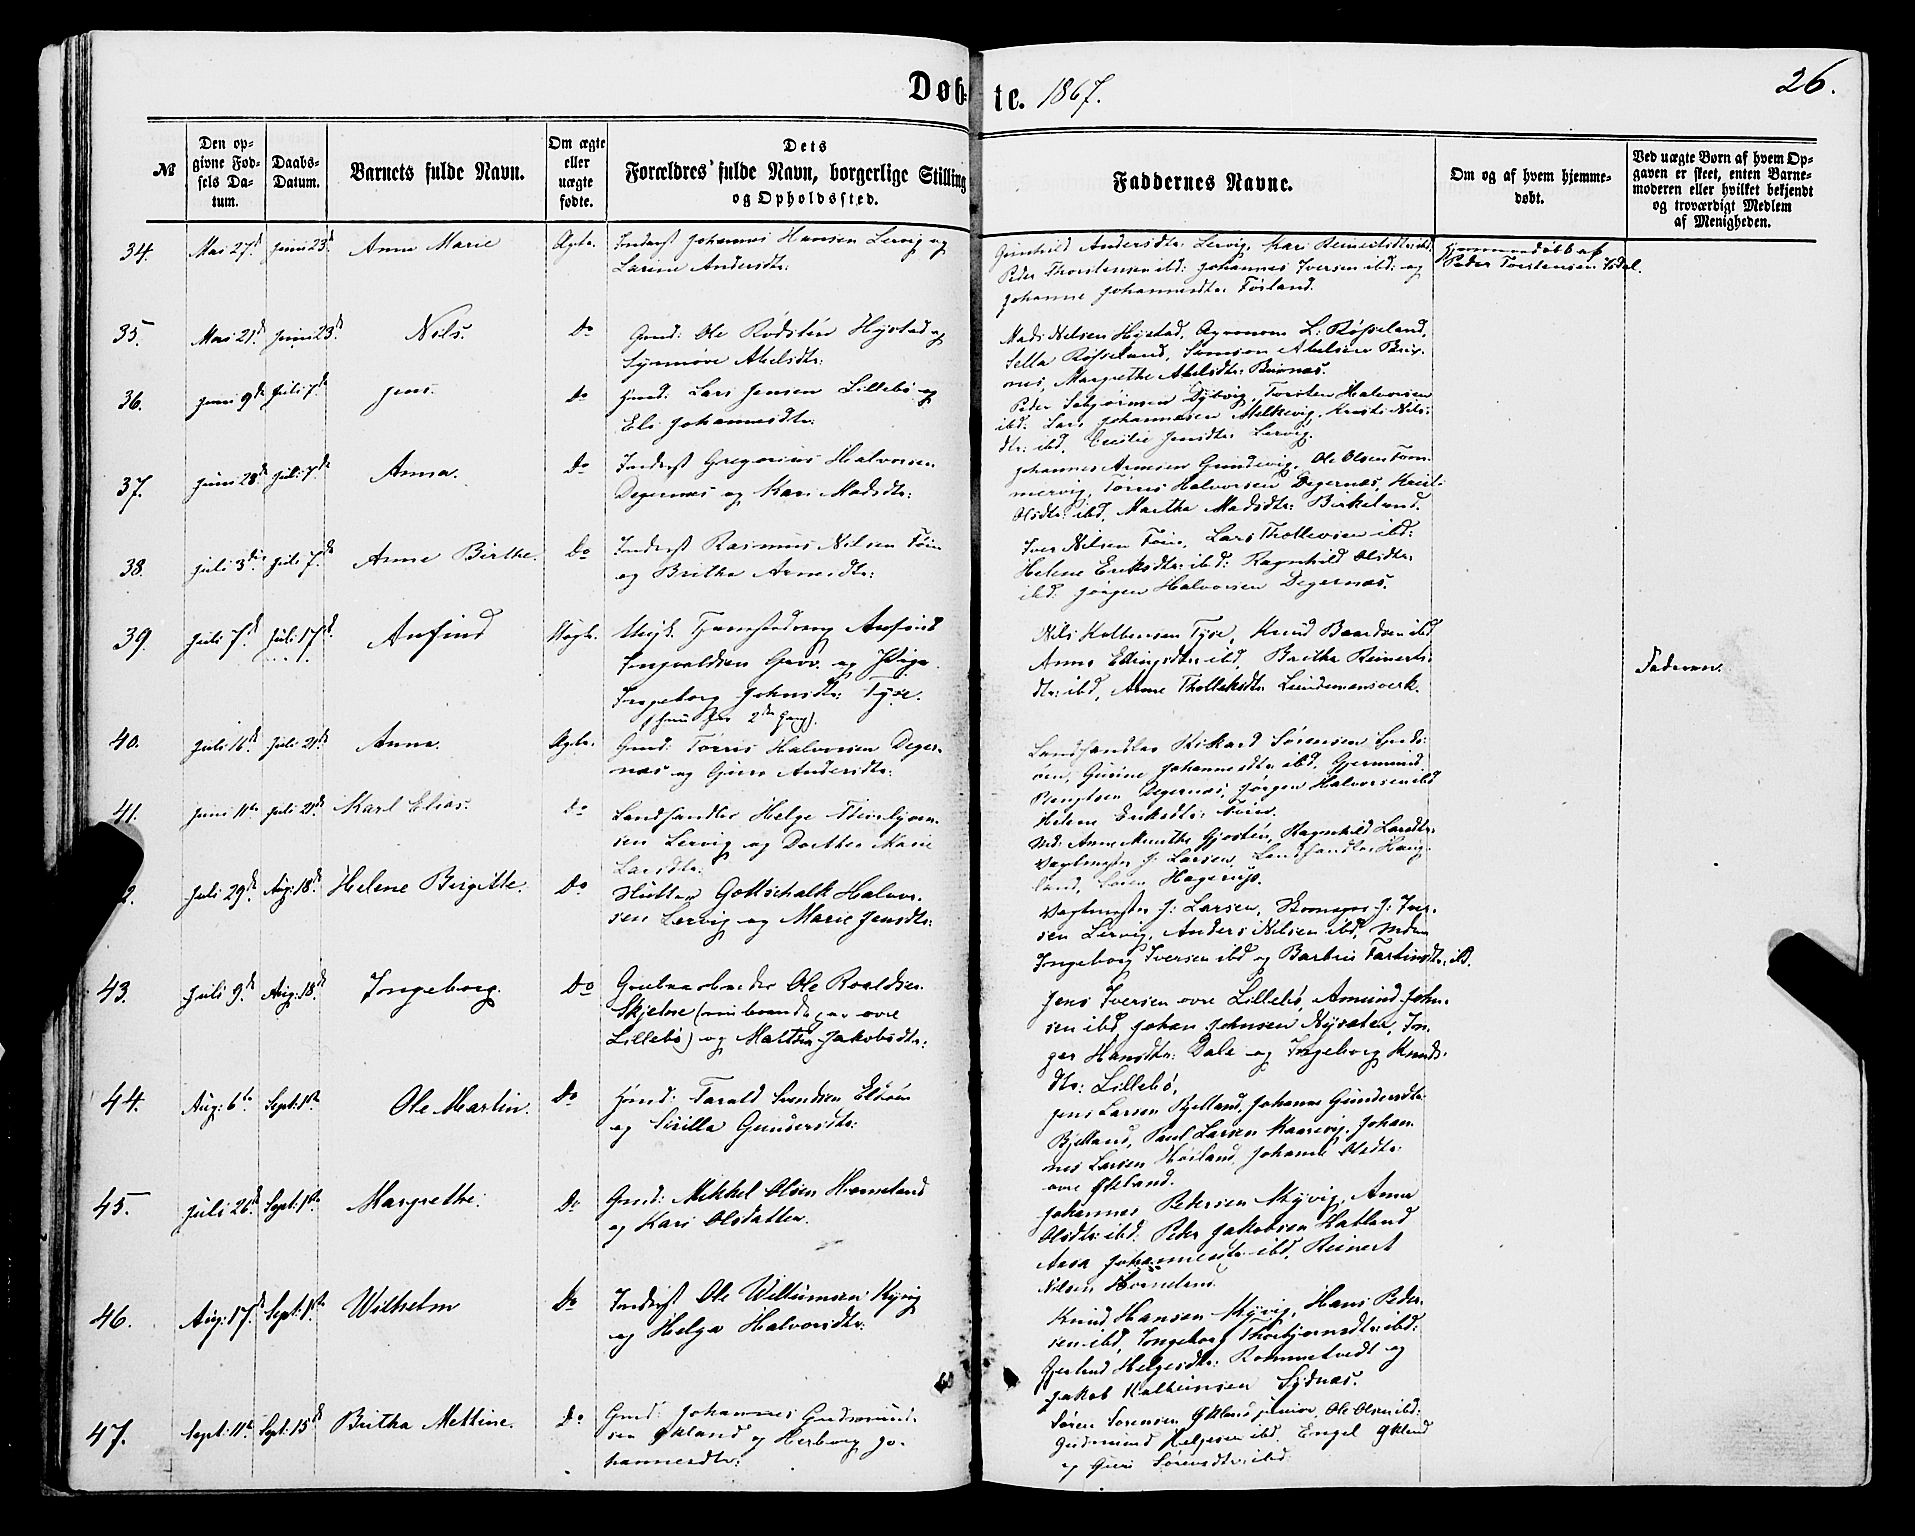 Døbte. 1867.
26.
№
Den opgivne Fødsels Datum.
Daabs-Datum.
Barnets fulde Navn.
Om ægte eller uægte fødte.
Dets Forældres' fulde Navn, borgerlige Stilling og Opholdssted.
Faddernes Navne.
Om og af hvem hjemmedøbt.
Ved uægte Børn af hvem Opgaven er skeet, enten Barnemoderen eller hvilket bekjendt og troværdigt Medlem af Menigheden.
34. Mai 27de Juni 23de Anna Marie Ægte. Inderst Johannes Hansen Lervig og
Larine Andersdtr:
Gunhild Andersdtr: Lervig, Kari Reinertsdtr: ibd:
Peder Thorstensen ibd: Johannes Iversen ibd: og
Johanne Johannesdtr: Førland.
Hjemmedøbt af
Peder Torstensen
35. Mai 21de Juni 23de Nils. Do Gmd: Ole Rødstén Hystad og
Synnøve Abelsdtr:
Mads Nilsen Hystad, Agronom L: Røsseland,
Sella Røsseland, Samson Abelsen
Margrethe Abelsdtr:
36. Juni 9de Juli 7de Jens. Do Gmd: Lars Jensen Lillebø og
Eli Johannesdtr:
Peder Dybvig, Torsten Halvorsen
ibd: Lars Johannesen Melkevig, Kristi Nils-
dtr: ibd, Cecilie Jensdtr: Lervig.
37. Juni 28de Juli 7de Anna. Do Inderst Gregorius Halvorsen
Degernæs og Kari Madsdtr:
Johannes Arnesen Grindevig, Ole Olsen Tom-
mervig, Tørres Halvorsen Degernæs, Kristi
Olsdtr: ibd, Martha Madsdtr: Birkeland.
38. Juli 3die Juli 7de Anne Birthe. Do Inderst Rasmus Nilsen Føin
og Britha Arnesdtr:
Iver Nilsen Føin, Lars Thollevsen ibd:
Helene Eriksdtr: ibd: Ragnhild Olsdtr:
ibd: Jørgen Halvorsen Degernæs.
39. Juli 7de Juli 17de Anfind Uægte. Ungk. Anfind
Ingvaldsen og Pige
Ingeborg Johnsdtr: Tyse.
2den Gang).
Nils Kolbensen Tyse, Knud Baardsen ibd
Anna ibd, Britha Reinerts-
dtr: ibd, Arne Lundemansverk.
Faderen.
40. Juli 16de Juli 21de Anna. Ægte. Gmd: Tørris Halvorsen Deger-
næs og Guro Andersdtr:
Landhandler Rikard Sørensen
Gurine Johannesdtr: ibd, Gjermund
Bengtsen Degernæs, Jørgen Halvorsen ibd
Helene Eriksdtr: Føien.
41. Juni 11te Juli 21de Karl Elias. Do Landhandler Helge
Lervig og Dorthea Marie
Larsdtr:
Md: Anne Gjøstén, Ragnhild Larsdtr:
Vagtmester J: Larsen, Landhandler Haug-
land, Søren Hagerup.
2. Juli 29de Aug: 18de Helene Birgitte. Do Gottschalk Halvor-
sen Lervig og Marie Jensdtr:
Vagtmester J: Larsen, J: Iver-
sen Lervig, Anders Nilsen ibd, Mdm
Ingeborg Iversen ibd og Barbru ibd.
43. Juli 9de Aug: 18de Ingeborg. Do Grubearbeider Ole Roaldsen
Skjelne
Lillebø) og Martha Jakobsdtr:
Jens Iversen øvre Lillebø, Amund John-
sen ibd, Johan Johnsen Nysæter, In-
ger Hansdtr: Dale og Ingeborg Knuds-
dtr: Lillebø.
44. Aug: 6te Sept: 1ste Ole Martin. Do Gmd: Tarald Svendsen
og Sirilla Gundersdtr:
Jens Larsen Bjelland, Johanne Gundersdtr
Bjelland, Paul Larsen Kaarevig, Johan-
nes Larsen Høiland, Johanne Olsdtr:
øvre Økland.
45. Juli 26de Sept: 1ste Margrethe. Do Gmd: Mikkel Olsen Horneland
og Kari Olsdatter.
Johannes Pedersen Kyvig, Anna
Olsdtr: ibd: Peder Jakobsen Hatland
Aasa Johannesdtr: ibd, Reinert
Nilsen Horneland.
46. Aug: 17de Sept: 1ste Wilhelm Do Inderst Ole Willumsen Kyvig
og Helga Halvorsdtr:
Knud Hansen Kyvig, Hans Peder-
sen ibd, Ingeborg Thorbjørnsdtr: ibd:
Gjerlend Helgesdtr: Rommetvedt og
Jakob Kolbeinsen Sydnæs.
47. Sept: 11te Sept: 15de Britha Mettine. Do Gmd: Johannes Gudmund-
sen Økland og Herborg Jo-
hannesdtr:
Søren Sørensen Økland junior, Ole Olsen ibd:
Gudmund Helgesen ibd, Engel Økland
og Guri Sørensdtr: ibd: